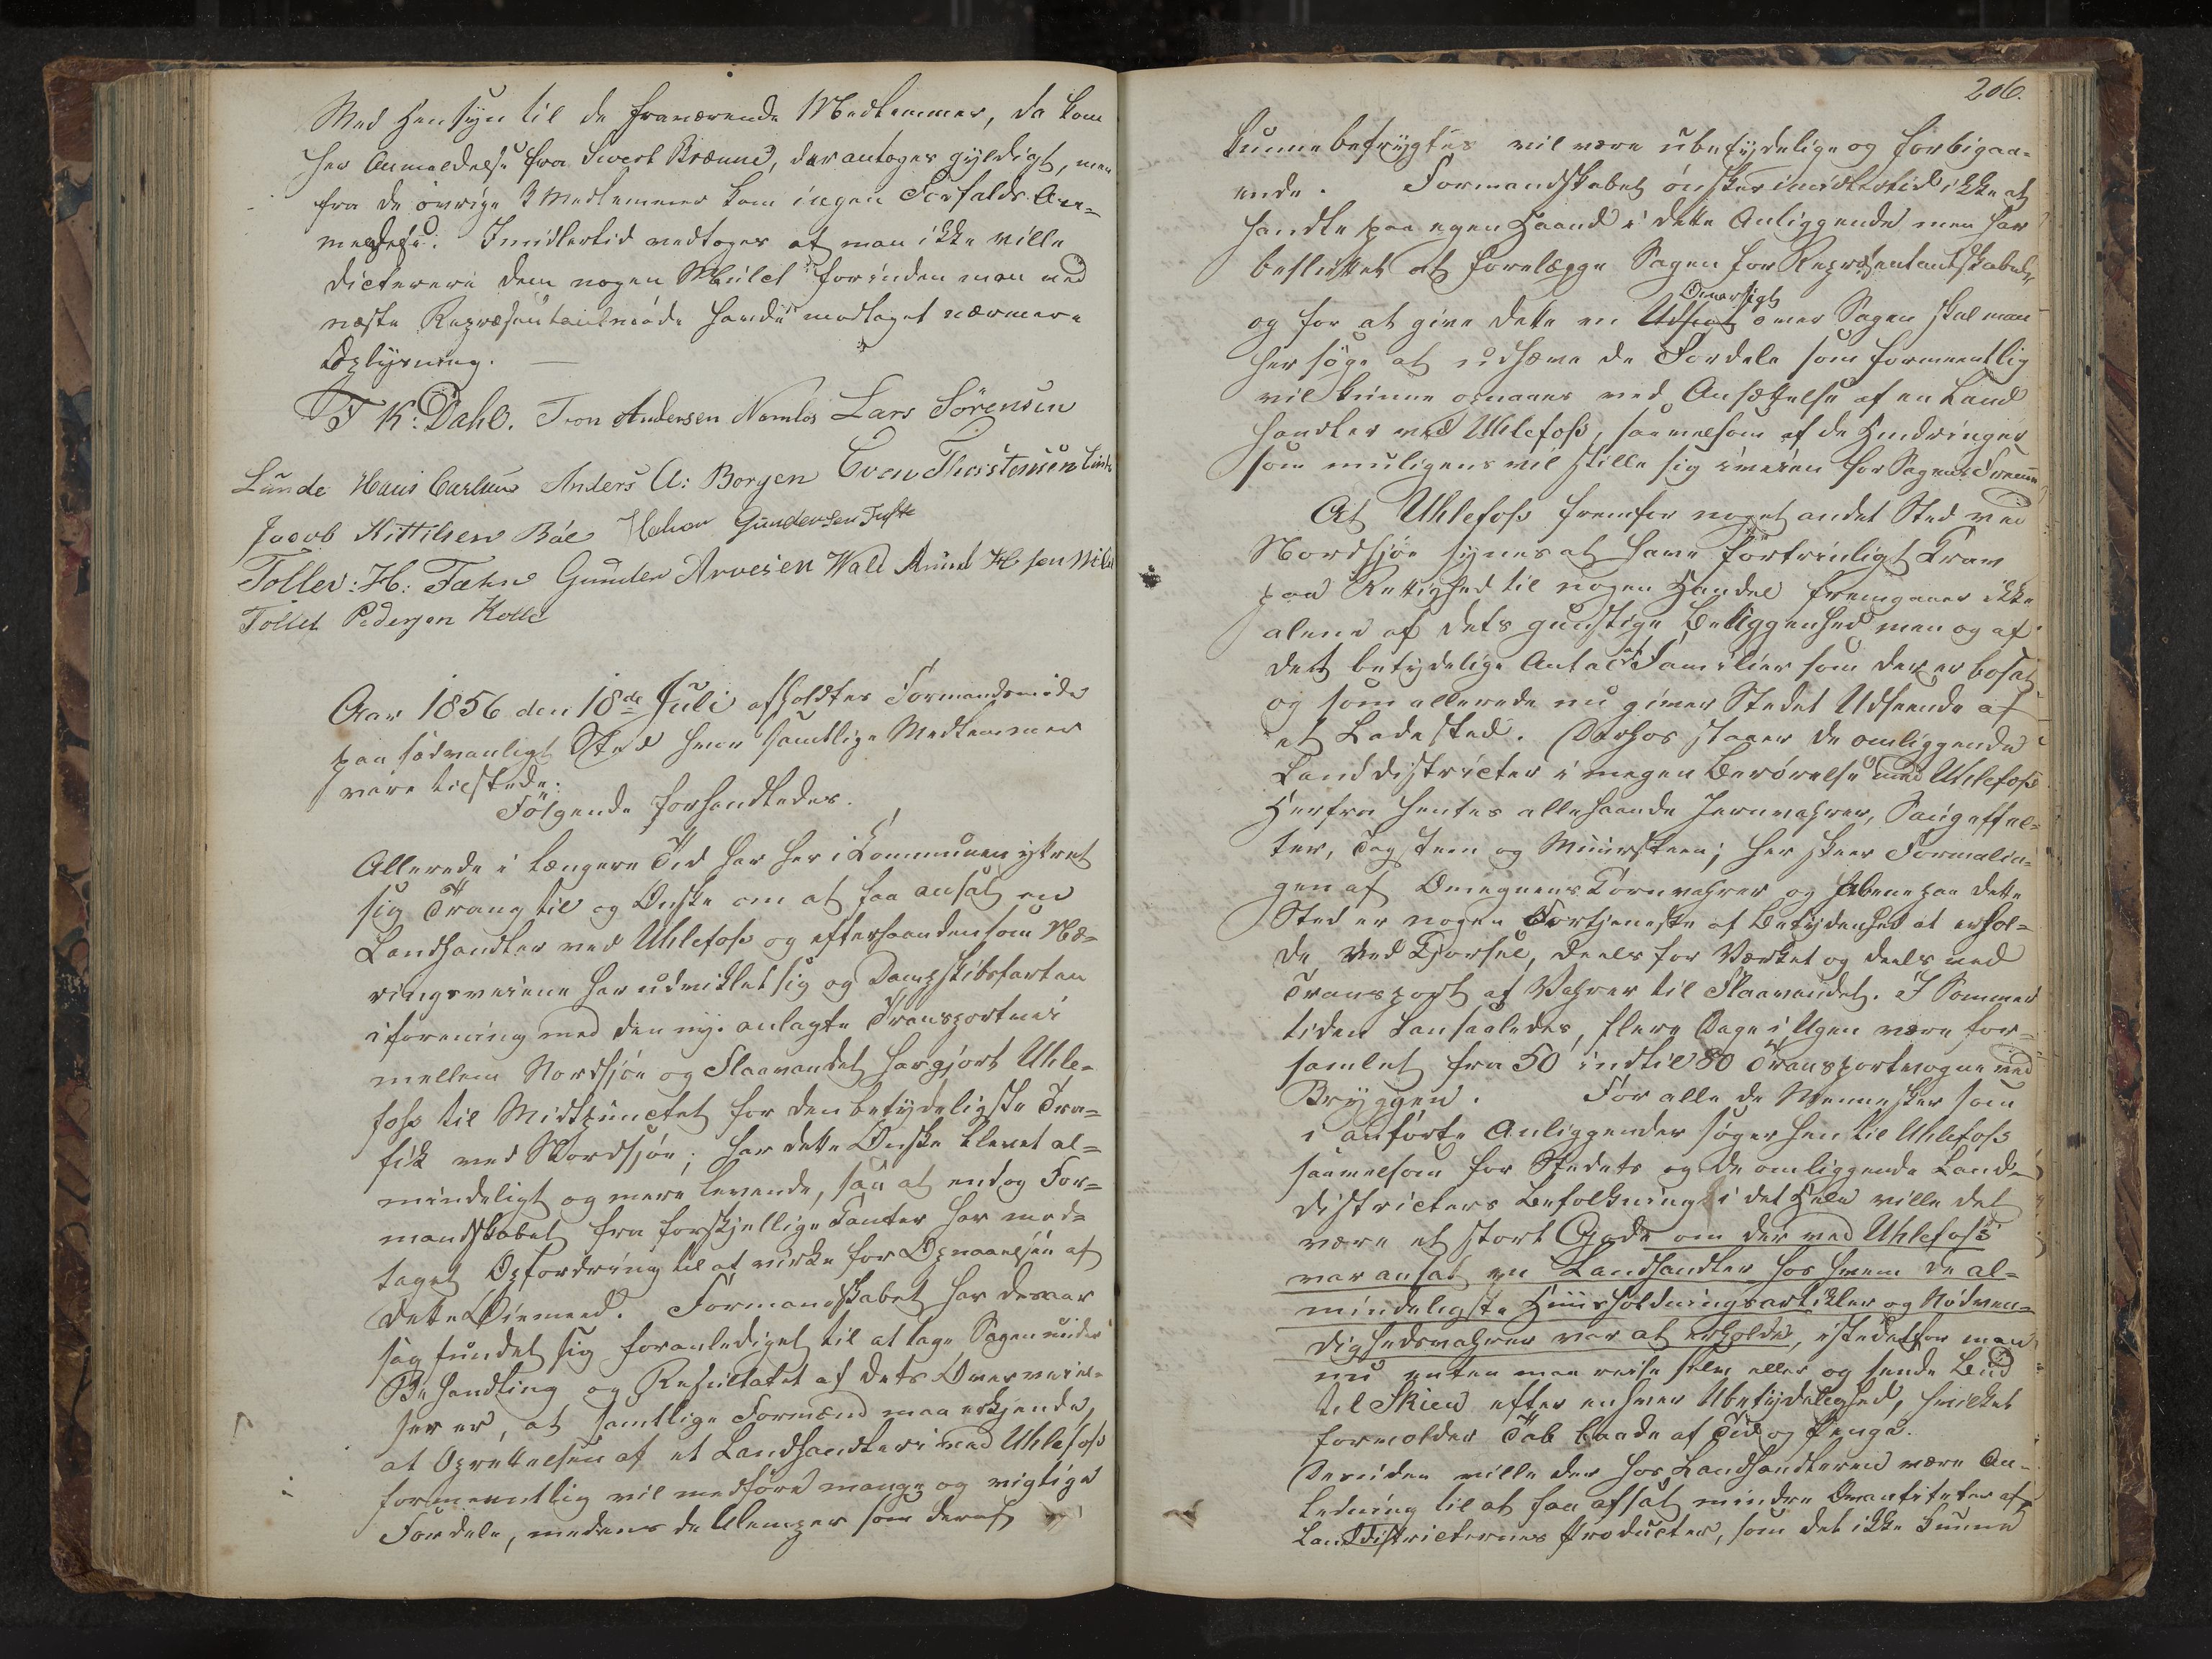 Med Hensyn til de fraværende Medlemmer, da kom
her Anmeldelse fra Sivert Brænne, der antoges gyldigt, men
fra de övrige 3 Medlemmer kom ingen Forfalds An-
meldelse. Imidlertid vedtoges at man ikke vilde
dicterere dem nogen Mulct forinden man ved
næste Repræsentantmöde havde modtaget nærmere
Oplysning. —
T K: Dahl. Tron Andersen Namlos Lars Sörensen
Lunde Hans Carlsen Anders A: Borgen Even Thorstensen Lind
Jacob Kittilsen Båe Halvor Gundersen Tufte
Tollev: H: Fæhn Gunder Arvesen Wald Amund H sen
Tollef Pedersen Kolle
Aar 1856 den 18de Juli afholdtes Formandsmöde
paa sædvanligt Sted hvor samtlige Medlemmer
vare tilstede.
Fölgende forhandledes.
Allerede i længere Tid har her i Kommunen ytret
sig Trang til og Ønske om at faa ansat en
Landhandler ved Uhlefoss og efterhaanden som Næ-
ringsveiene har udviklet sig og Dampskibsfarten
iforening med den ny-anlagte Transportvei
mellem Nordsjöe og Flaavandet har gjort Uhle-
foss til Midtpunctet for den betydeligste Tra-
fik ved Nordsjöe; har dette Ønske blevet al-
mindeligt og mere levende, saa at endog For-
mandskabet fra forskjellige Kanter har mod-
taget Opfordring til at virke for Opnaaelsen af
dette Øiemeed. Formandskabet har desaar-
sag fundet sig foranlediget til at tage Sagen under
Behandling og Resultatet af dets Overveiel-
ser er, at samtlige Formænd maa erkjende,
at Oprettelsen af et Landhandleri ved Uhlefoss
formeentlig vil medföre mange og vigtige
Fordele, medens de Ulemper som deraf
206.
kunne befrygtes vil være ubetydelige og forbigaa-
ende. Formandskabet önsker imidlertid ikke at
handle paa egen Haand i dette Anliggende men har
besluttet at forelægge Sagen for Repræsentantskabet,
Oversigt
og for at give dette en Udsigt over Sagen skal man
her söge at udhæve de Fordele som formeentlig
vil kunne opnaaes ved Ansættelse af en Land
handler ved Uhlefoss, saavelsom af de Hindringer
som muligens vil stille sig iveien for Sagens Fremme
At Uhlefoss fremfor noget andet Sted ved
Nordsjöe synes at have fortrinligt Krav
paa Rettighed til nogen Handel fremgaaer ikke
alene af dets gunstige Beliggenhed men og af
det betydelige Antal af Familier som der er bosat
og som allerede nu giver Stedet Udseende af
et Ladested. Derhos staaer de omliggende
Landdistricter i megen Berörelse med Uhlefoss
Herfra hentes allehaande Jernvahrer, Saugeffec-
ter, Tagsteen og Muursteen; her skeer Formalin-
gen af Omegnens Kornvahrer og alene paa dette
Sted er nogen Fortjeneste af Betydenhed at erhol-
de ved Kjörsel, deels for Værket og deels ved
Transport af Vahrer til Flaavandet. I Sommer
tiden kan saaledes, flere Dage i Ugen være for-
samlet fra 50 indtil 80 Transportvogne ved
Bryggen. For alle de Mennesker som
i anförte Anliggender söger hen til Uhlefoss
saavelsom for Stedets og de omliggende Land-
districters Befolkning i det Hele ville det
være et stort Gode om der ved Uhlefoss
var ansat en Landhandler hos hvem de al-
mindeligste Huusholdningsartikler og Nödven-
dighedsvahrer var at erholde, istedetfor man
nu enten maa reise selv eller og sende Bud
til Skien efter enhver Ubetydelighed, hvilket
forvolder Tab baade af Tid og Penge.
Desuden ville der hos Landhandleren være An-
ledning til at faa afsat mindre Qvantiteter af
Landdistricternes Producter, som det ikke kunne